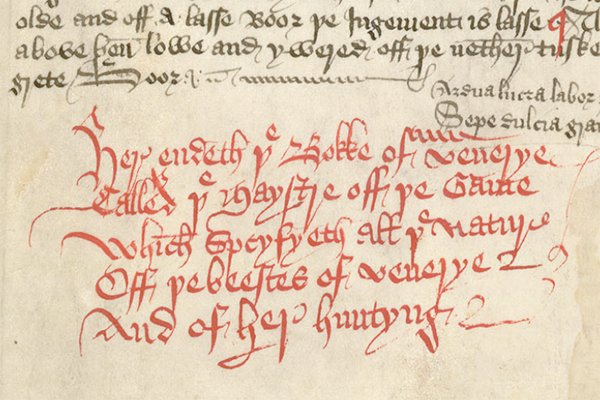 olde and off a lasse Boor þe Jngement is lasse
above hen lowe and ywered off þe nether tuske
grete Boor
Ardua lucra labor
Sepe dulcia gra
Her endeth þe Bokke of venerye
Called þe Maystre off þe Game
Which Specyfyeth all þe nature
Off þe beestes of venerye
And of her huntyng